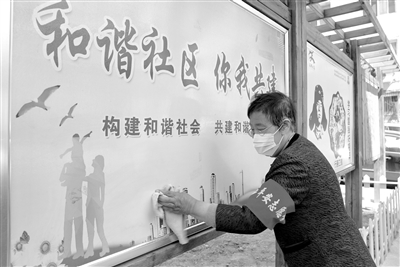 和谐社区 你我共建
构建和谐社会 共建和谐